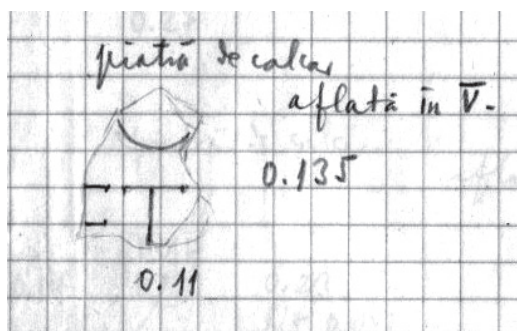 piatră de calcar
aflată în V.
0.135
0.11